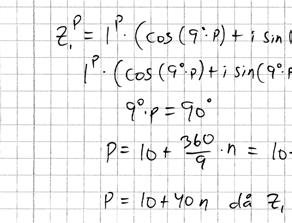 Z₁ᵖ = 1ᵖ · (cos(9°·p) + i sin(
1ᵖ · (cos(9°·p) + i sin(9°·p
9°·p = 90°
P = 10 + 360/9 · n = 10
P = 10 + 40n då Z₁